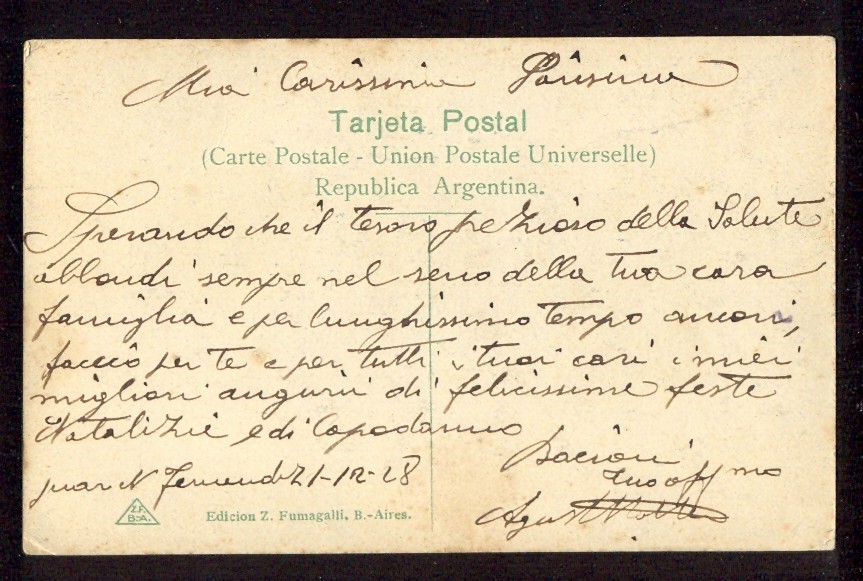 Mia Carissima
Tarjeta Postal
(Carte Postale - Union Postale Universelle)
Republica Argentina.
Sperando che il tesoro pezioso della Salute
abbondi sempre nel seno della tua cara
famiglia e per lunghissimo tempo ancora,
faccio per te e per tutti i tuoi cari i miei
migliori augurii di felicissime feste
Natalizie e di Capodanno
Bacioni
tuo aff mo
Juan N Fernand 21-12-28
Z.F.
B.A.
Edicion Z. Fumagalli, B.-Aires.